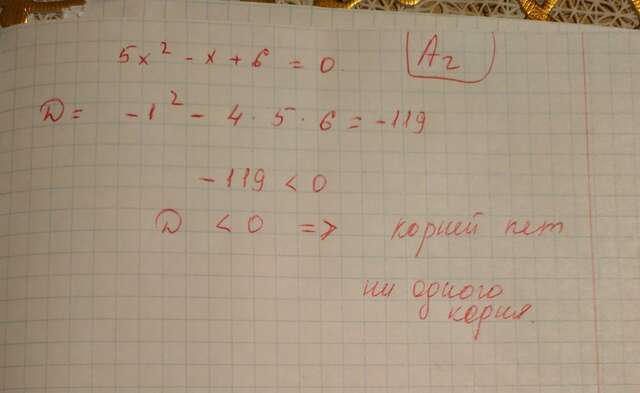 5x² - x + 6 = 0. A2
D = -1² - 4 · 5 · 6 = -119
-119 < 0
D < 0 => корней нет
ни одного
корня.